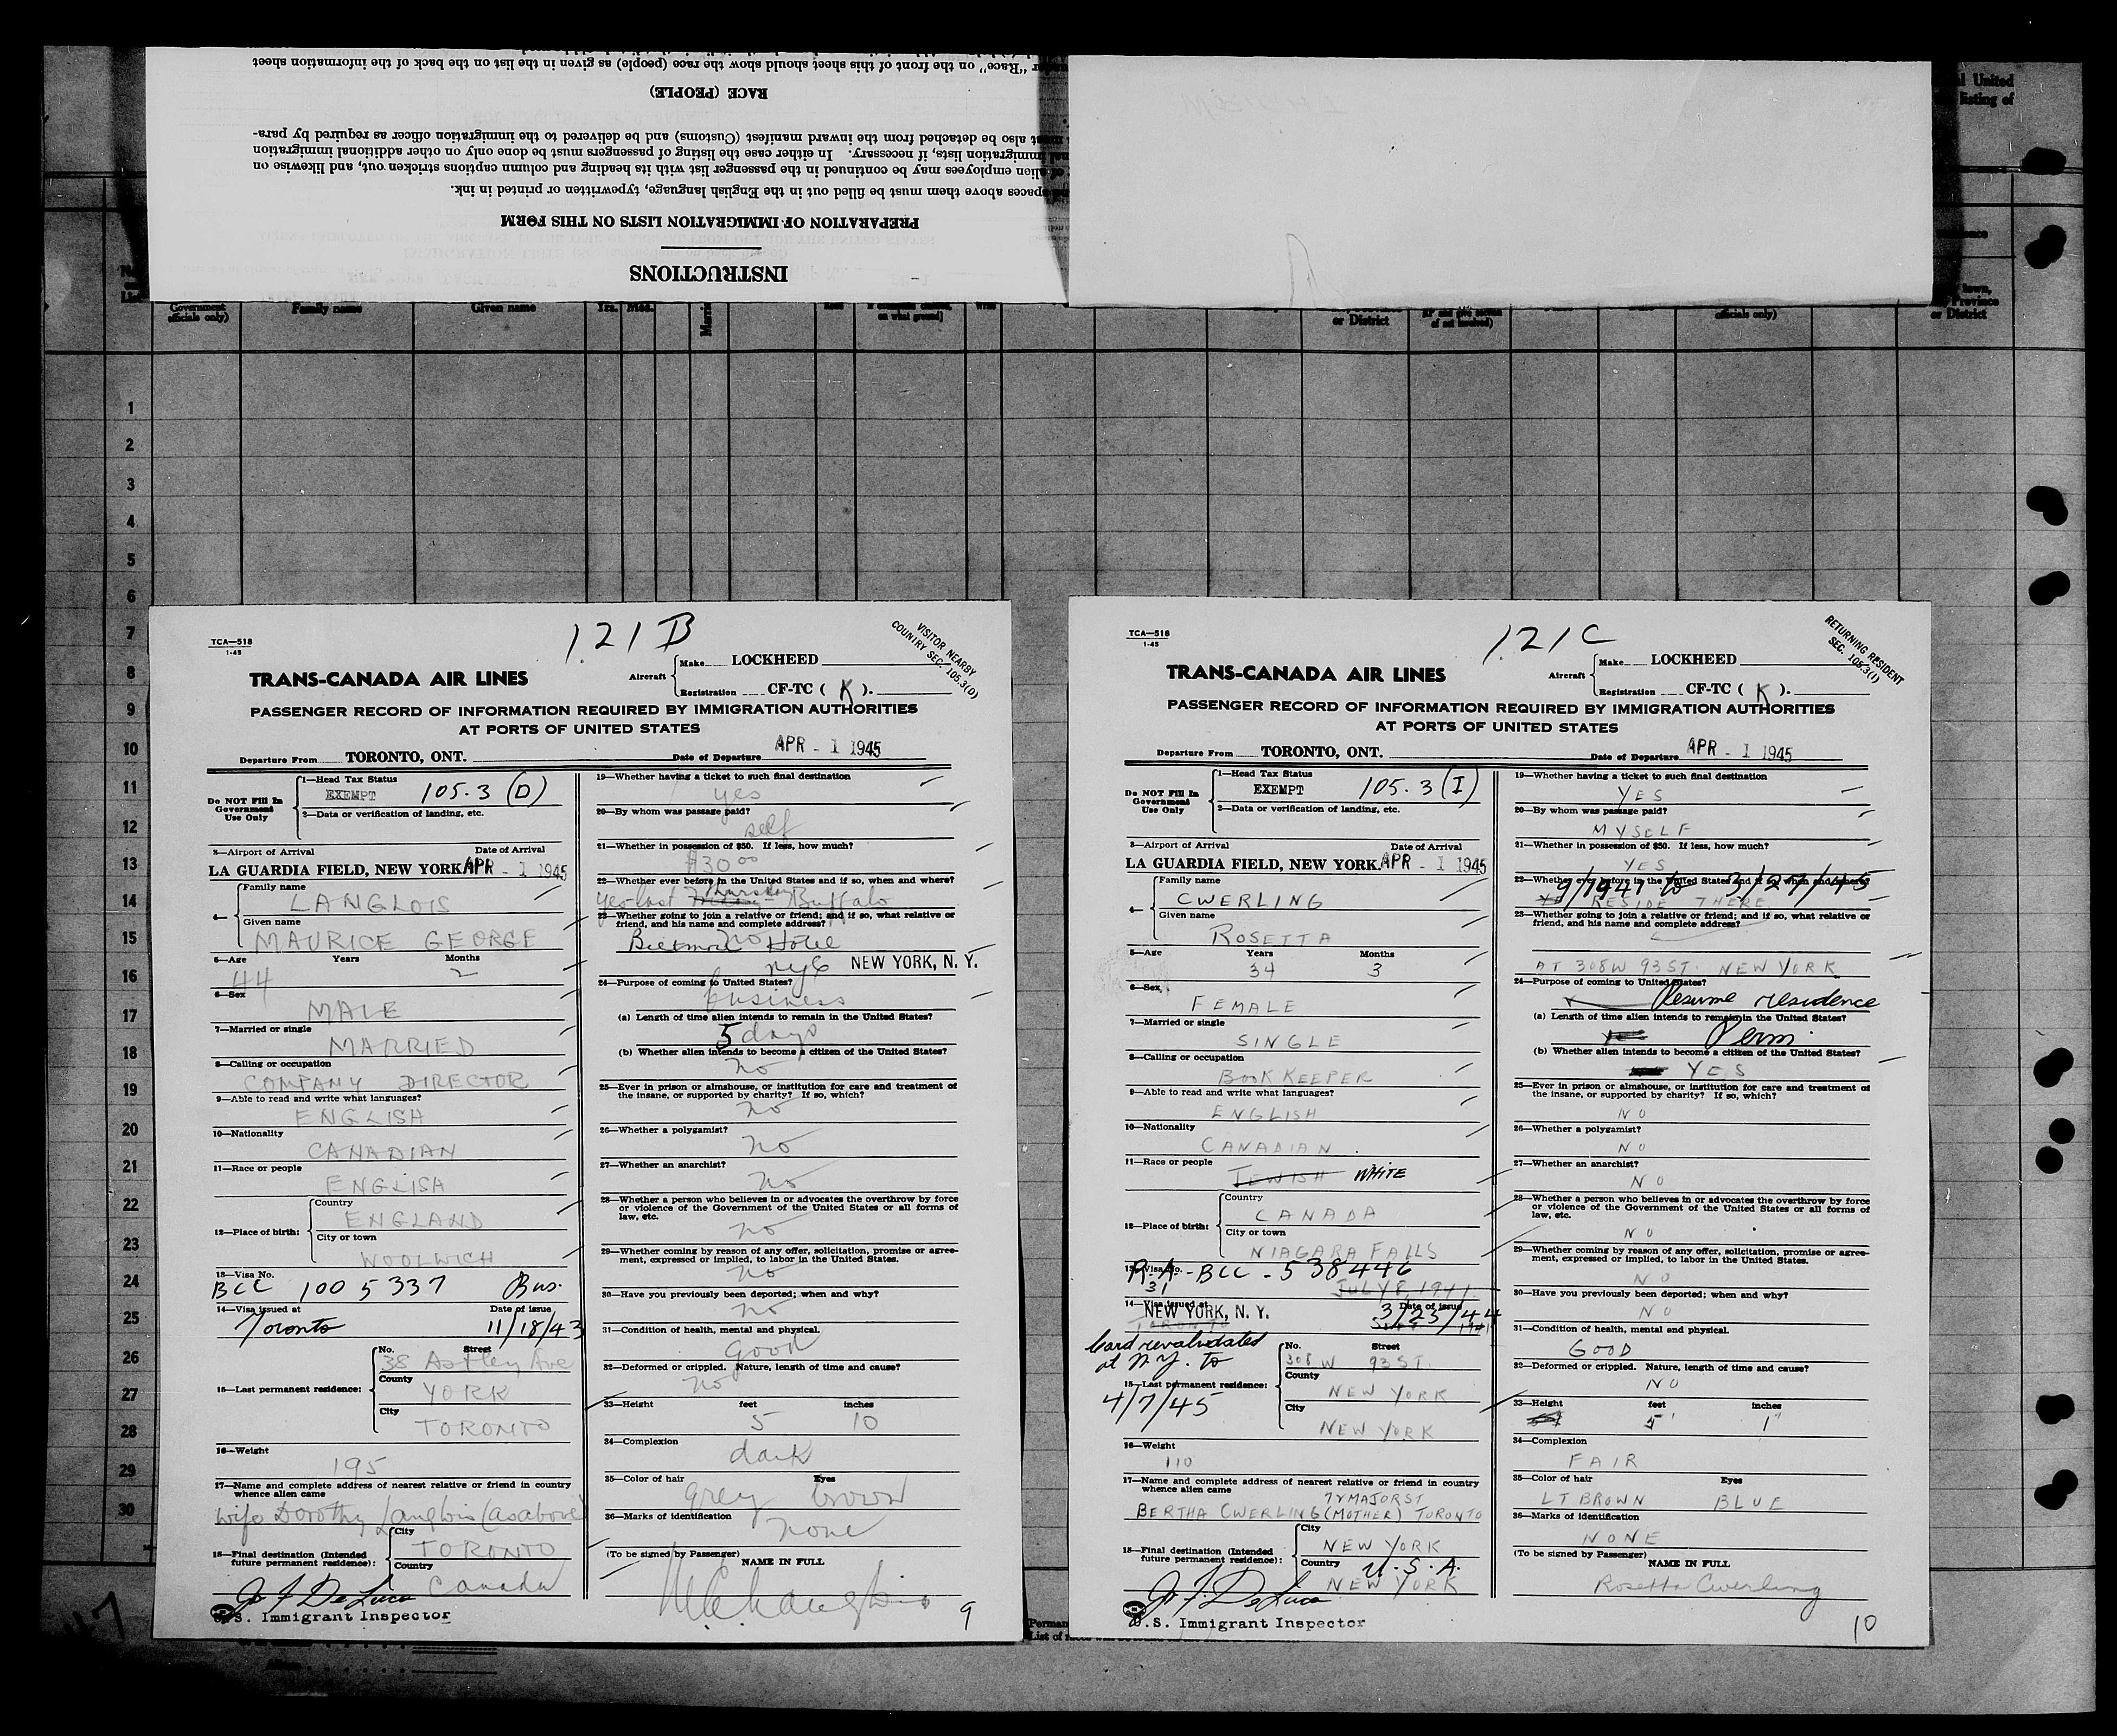 under "Race" on the front of this sheet should show the race (people) as given in the list on the back of the information sheet
RACE (PEOPLE)
must also be detached from the inward manifest (Customs) and be delivered to the immigration officer as required by para-
immigration lists, if necessary. In either case the listing of passengers must be done only on other additional immigration
of alien employees may be continued in the passenger list with its heading and column captions stricken out, and likewise on
spaces above them must be filled out in the English language, typewritten or printed in ink.
PREPARATION OF IMMIGRATION LISTS ON THIS FORM
INSTRUCTIONS
United
listing of
town,
Province
or District
Government
officials only)
Family name
Given name
Yrs. Mos.
Read
on what ground]
Write
or District
officials only)
1
2
3
4
5
6
7
8
9
10
11
12
13
14
15
16
17
18
19
20
21
22
23
24
25
26
27
28
29
30
TCA—518
1-45
121B
VISITOR NEARBY
COUNTRY SEC. 105.3(D)
TRANS-CANADA AIR LINES
Aircraft
Make LOCKHEED
Registration CF-TC ( K ).
PASSENGER RECORD OF INFORMATION REQUIRED BY IMMIGRATION AUTHORITIES
AT PORTS OF UNITED STATES
Departure From TORONTO, ONT. Date of Departure APR - 1 1945
Do NOT Fill In
Government
Use Only
1—Head Tax Status
EXEMPT 105.3 (D)
2—Data or verification of landing, etc.
3—Airport of Arrival Date of Arrival
LA GUARDIA FIELD, NEW YORK APR - 1 1945
4—
Family name
LANGLOIS
Given name
MAURICE GEORGE
5—Age Years Months
44 2
6—Sex
MALE
7—Married or single
MARRIED
8—Calling or occupation
COMPANY DIRECTOR
9—Able to read and write what languages?
ENGLISH
10—Nationality
CANADIAN
11—Race or people
ENGLISH
12—Place of birth:
Country
ENGLAND
City or town
WOOLWICH
13—Visa No.
BCC 1005337 Bus.
14—Visa issued at Date of issue
Toronto 11/18/43
15—Last permanent residence:
No. Street
38 Astley Ave
County
YORK
City
TORONTO
16—Weight
195
17—Name and complete address of nearest relative or friend in country
whence alien came
wife Dorothy Langlois (as above)
18—Final destination (Intended
future permanent residence):
City
TORONTO
Country
Canada
J. F. DeLuca
U.S. Immigrant Inspector
19—Whether having a ticket to such final destination
yes
20—By whom was passage paid?
self
21—Whether in possession of $50. If less, how much?
$30 00
22—Whether ever before in the United States and if so, when and where?
Thursday
yes last Buffalo
23—Whether going to join a relative or friend; and if so, what relative or
friend, and his name and complete address?
no
Biltmore Hotel
nyc NEW YORK, N. Y.
24—Purpose of coming to United States?
business
(a) Length of time alien intends to remain in the United States?
5 days
(b) Whether alien intends to become a citizen of the United States?
no
25—Ever in prison or almshouse, or institution for care and treatment of
the insane, or supported by charity? If so, which?
no
26—Whether a polygamist?
no
27—Whether an anarchist?
no
28—Whether a person who believes in or advocates the overthrow by force
or violence of the Government of the United States or all forms of
law, etc.
no
29—Whether coming by reason of any offer, solicitation, promise or agree-
ment, expressed or implied, to labor in the United States.
no
30—Have you previously been deported; when and why?
no
31—Condition of health, mental and physical.
Good
32—Deformed or crippled. Nature, length of time and cause?
no
33—Height feet inches
5 10
34—Complexion
dark
35—Color of hair Eyes
grey brown
36—Marks of identification
none
(To be signed by Passenger)
NAME IN FULL
9
TCA—518
1-45
121C
RETURNING RESIDENT
SEC. 105.3(I)
TRANS-CANADA AIR LINES
Aircraft
Make LOCKHEED
Registration CF-TC ( K ).
PASSENGER RECORD OF INFORMATION REQUIRED BY IMMIGRATION AUTHORITIES
AT PORTS OF UNITED STATES
Departure From TORONTO, ONT. Date of Departure APR - 1 1945
Do NOT Fill In
Government
Use Only
1—Head Tax Status
EXEMPT 105.3 (I)
2—Data or verification of landing, etc.
3—Airport of Arrival Date of Arrival
LA GUARDIA FIELD, NEW YORK. APR - 1 1945
4—
Family name
CWERLING
Given name
ROSETTA
5—Age Years Months
34 3
6—Sex
FEMALE
7—Married or single
SINGLE
8—Calling or occupation
BOOKKEEPER
9—Able to read and write what languages?
ENGLISH
10—Nationality
CANADIAN
11—Race or people
JEWISH WHITE
12—Place of birth:
Country
CANADA
City or town
NIAGARA FALLS
13—Visa No.
R.A.-BCC-538446
31 JULY 8, 1941
14—Visa issued at Date of issue
NEW YORK, N. Y. 3/23/44
TORONTO
Card revalidated
at N.Y. to
4/7/45
15—Last permanent residence:
No. Street
308 W 93 ST.
County
NEW YORK
City
NEW YORK
16—Weight
110
17—Name and complete address of nearest relative or friend in country
whence alien came
MAJOR ST
BERTHA CWERLING (MOTHER) TORONTO
18—Final destination (Intended
future permanent residence):
City
NEW YORK
Country U.S.A.
NEW YORK
J. F. DeLuca
U.S. Immigrant Inspector
19—Whether having a ticket to such final destination
YES
20—By whom was passage paid?
MYSELF
21—Whether in possession of $50. If less, how much?
YES
22—Whether ever before in the United States and if so, when and where?
9/1941 to 3/27/45
RESIDE THERE
23—Whether going to join a relative or friend; and if so, what relative or
friend, and his name and complete address?
AT 308 W 93 ST. NEW YORK
24—Purpose of coming to United States?
Resume residence
(a) Length of time alien intends to remain in the United States?
Perm
(b) Whether alien intends to become a citizen of the United States?
YES
25—Ever in prison or almshouse, or institution for care and treatment of
the insane, or supported by charity? If so, which?
NO
26—Whether a polygamist?
NO
27—Whether an anarchist?
NO
28—Whether a person who believes in or advocates the overthrow by force
or violence of the Government of the United States or all forms of
law, etc.
NO
29—Whether coming by reason of any offer, solicitation, promise or agree-
ment, expressed or implied, to labor in the United States.
NO
30—Have you previously been deported; when and why?
NO
31—Condition of health, mental and physical.
GOOD
32—Deformed or crippled. Nature, length of time and cause?
NO
33—Height feet inches
5' 1"
34—Complexion
FAIR
35—Color of hair Eyes
LT BROWN BLUE
36—Marks of identification
NONE
(To be signed by Passenger)
NAME IN FULL
Rosetta Cwerling
10